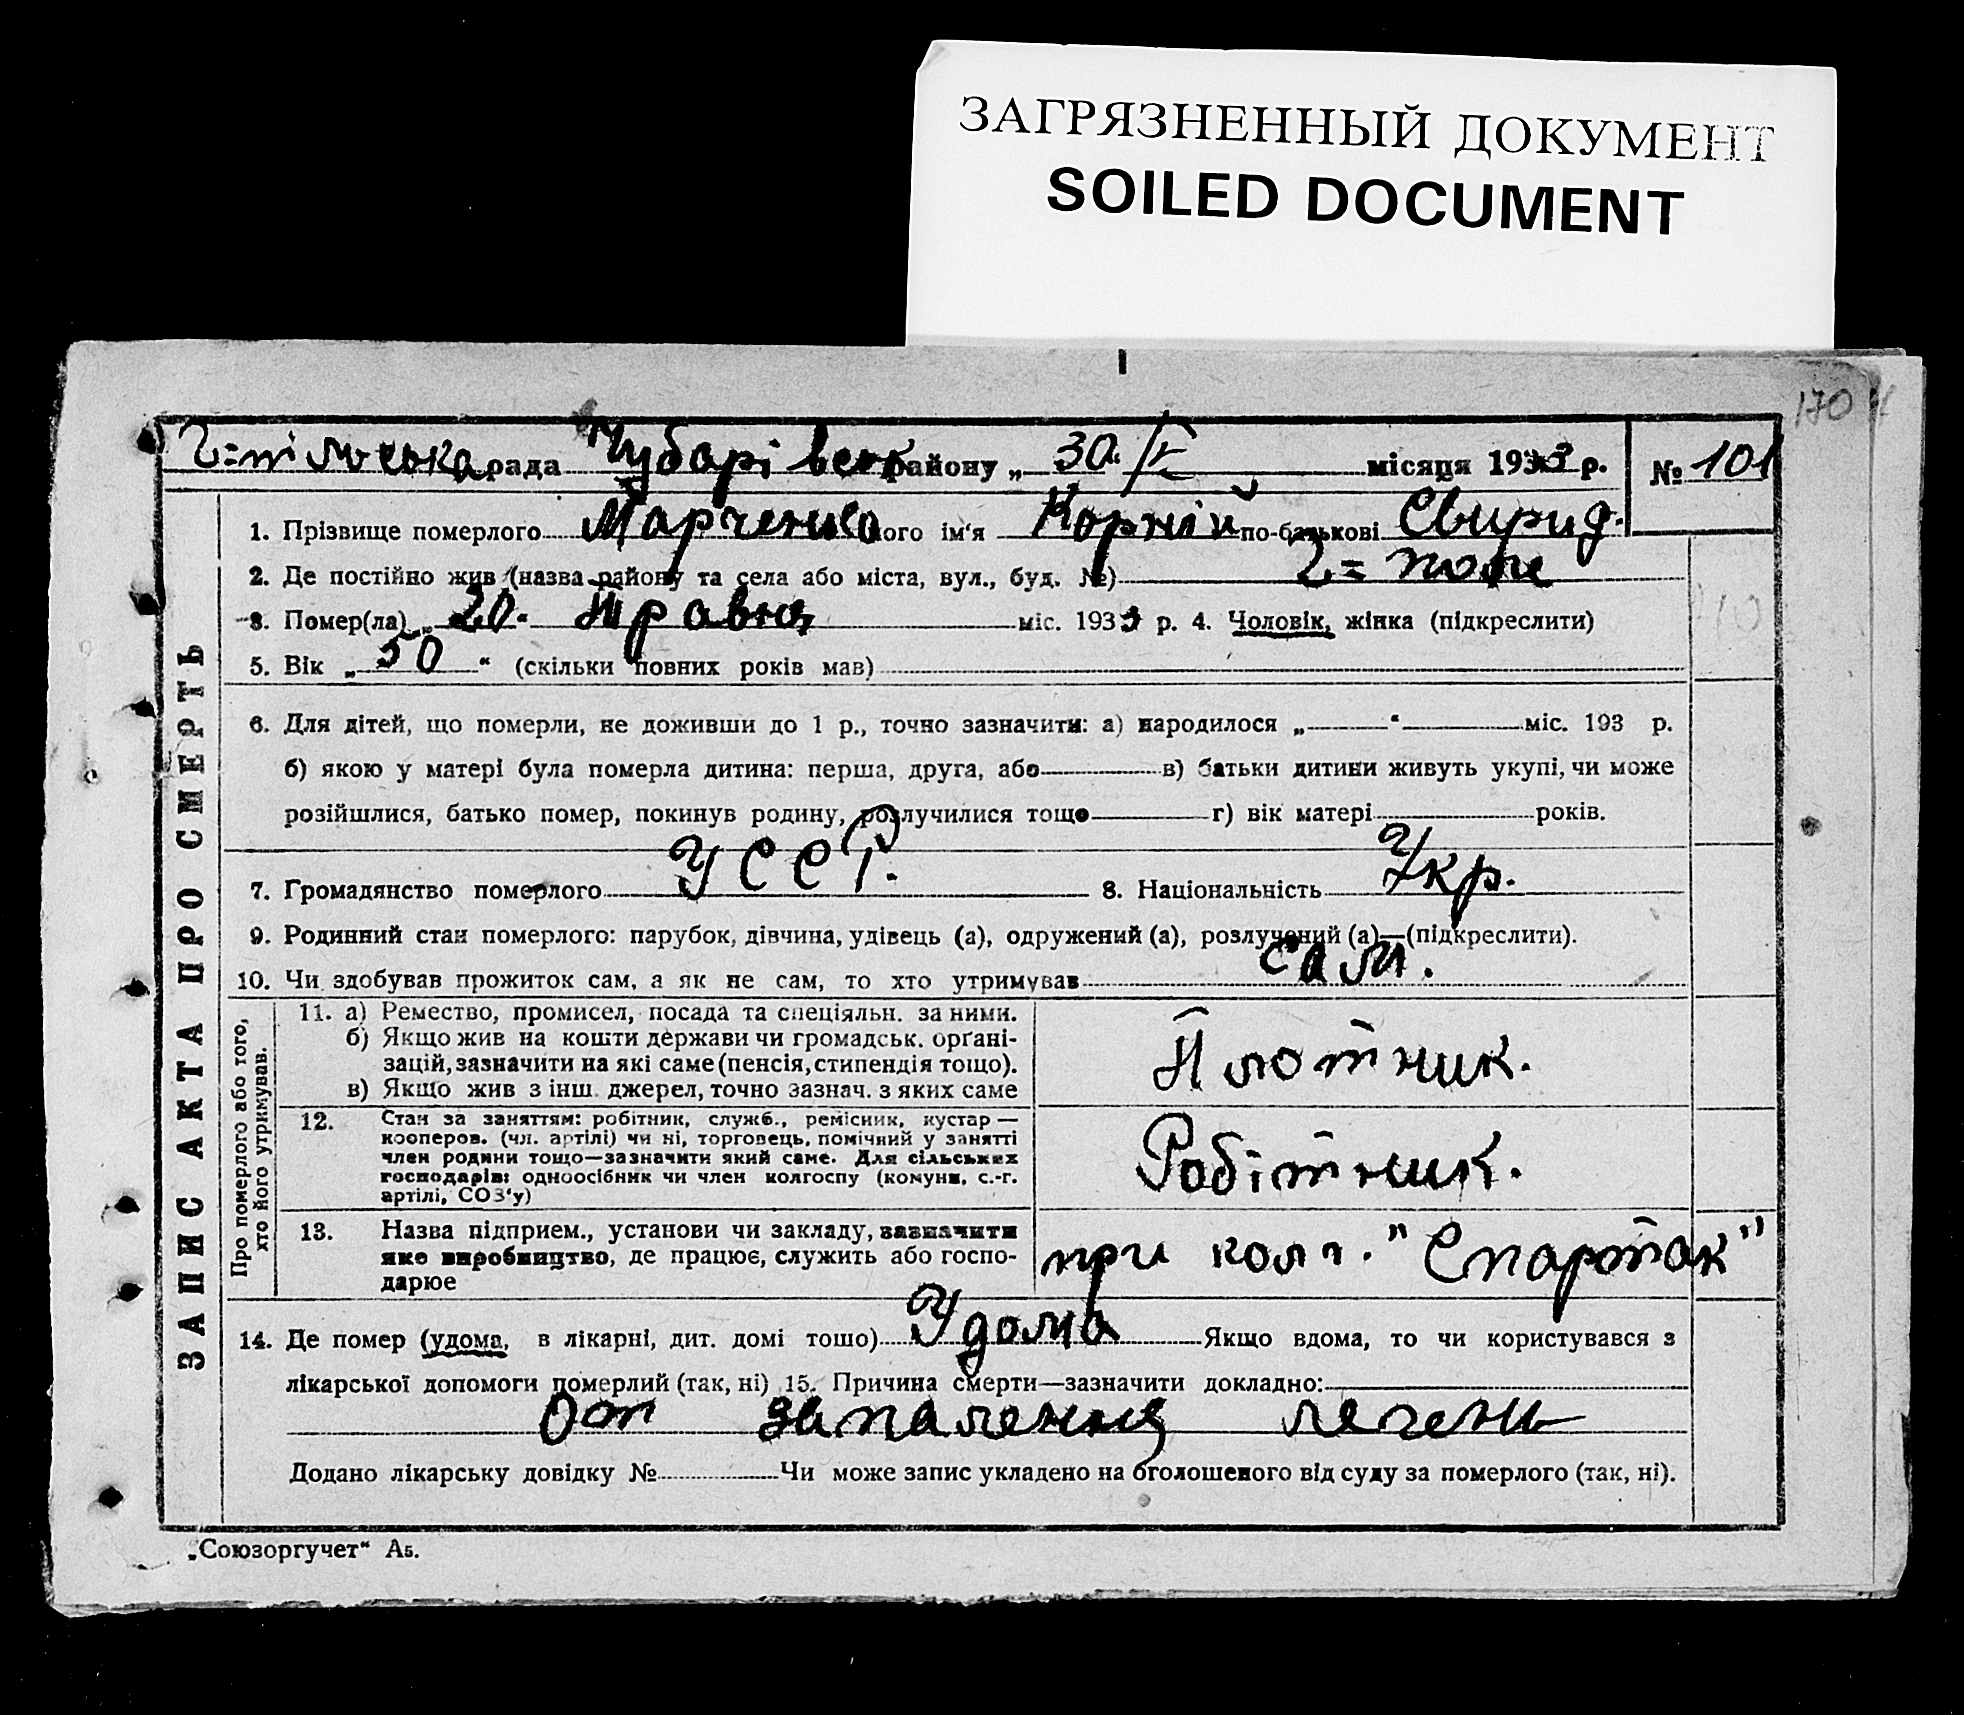 ЗАГРЯЗНЕННЫЙ ДОКУМЕНТ
SOILED DOCUMENT
170
рада Чубарівськ району „30“ /V місяця 1933 р. № 101
1. Прізвище померлого Марченко його ім'я Корній по-батькові Свирид.
2. Де постійно жив (назва району та села або міста, вул., буд. №) Г=поле
3. Помер(ла) „20“ Травня міс. 1933 р. 4. Чоловік, жінка (підкреслити)
5. Вік „50“ (скільки повних років мав)
6. Для дітей, що померли, не доживши до 1 р., точно зазначити: а) народилося „ “ міс. 193 р.
б) якою у матері була померла дитина: перша, друга, або в) батьки дитини живуть укупі, чи може
розійшлися, батько помер, покинув родину, розлучилися тощо г) вік матері років.
7. Громадянство померлого УССР. 8. Національність Укр.
9. Родинний стан померлого: парубок, дівчина, удівець (а), одружений (а), розлучений (а)—(підкреслити).
10. Чи здобував прожиток сам, а як не сам, то хто утримував сам.
ЗАПИС АКТА ПРО СМЕРТЬ
Про померлого або того,
хто його утримував.
11. а) Ремество, промисел, посада та спеціяльн. за ними.
б) Якщо жив на кошти держави чи громадськ. орґані-
зацій, зазначити на які саме (пенсія, стипендія тощо).
в) Якщо жив з інш. джерел, точно зазнач. з яких саме
Плотник.
12. Стан за заняттям: робітник, служб., ремісник, кустар —
кооперов. (чл. артілі) чи ні, торговець, помічний у занятті
член родини тощо—зазначити який саме. Для сільських
господарів: одноосібник чи член колгоспу (комуни, с.-г.
артілі, СОЗ'у)
Робітник.
13. Назва підприєм., установи чи закладу, зазначити
яке виробництво, де працює, служить або госпо-
дарює
при колг. "Спартак"
14. Де помер (удома, в лікарні, дит. домі тощо) Удома Якщо вдома, то чи користувався з
лікарської допомоги померлий (так, ні) 15. Причина смерти—зазначити докладно:
От запалення легень
Додано лікарську довідку № Чи може запис укладено на оголошеного від суду за померлого (так, ні).
„Союзоргучет“ А5.